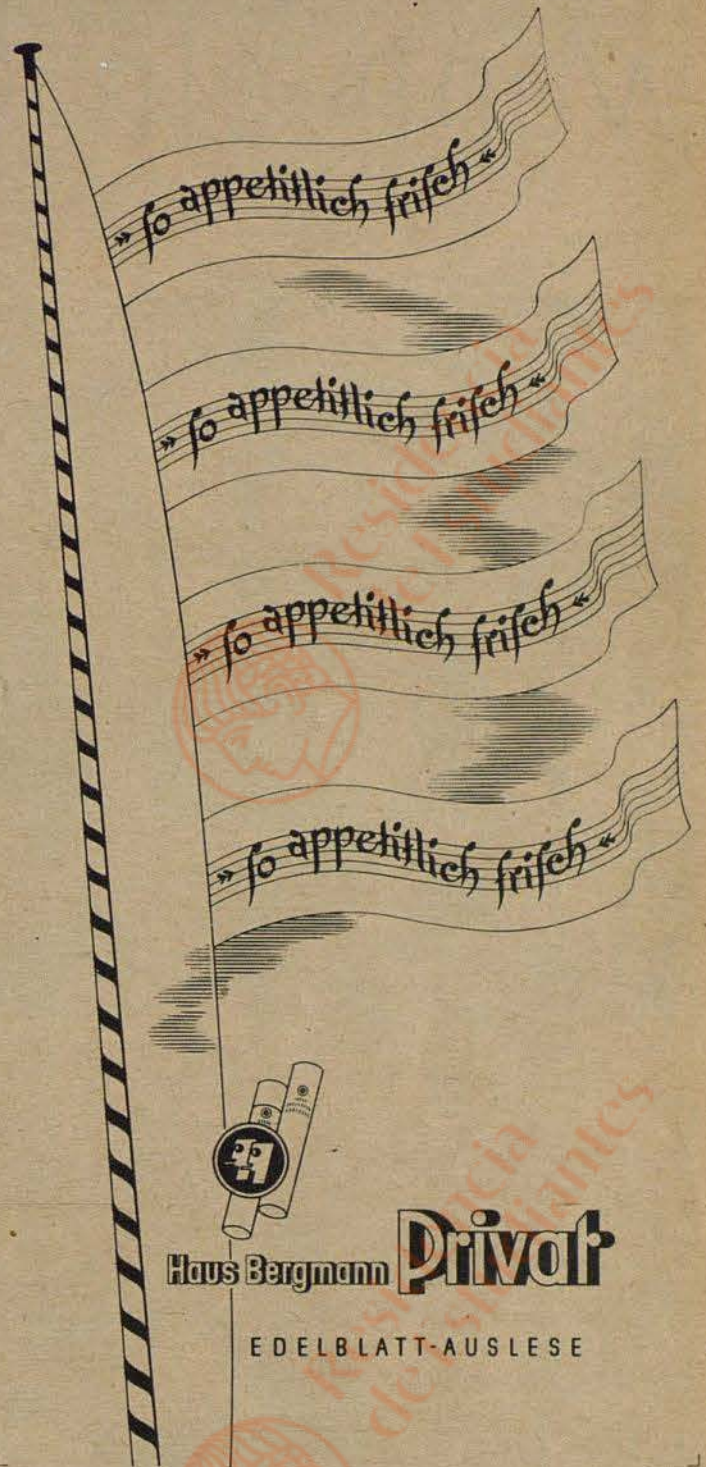 » ſo appetitlich friſch «
» ſo appetitlich friſch «
» ſo appetitlich friſch «
» ſo appetitlich friſch «
Haus Bergmann Privat
EDELBLATT-AUSLESE
Residencia
de Estudiantes
Residencia
de Estudiantes